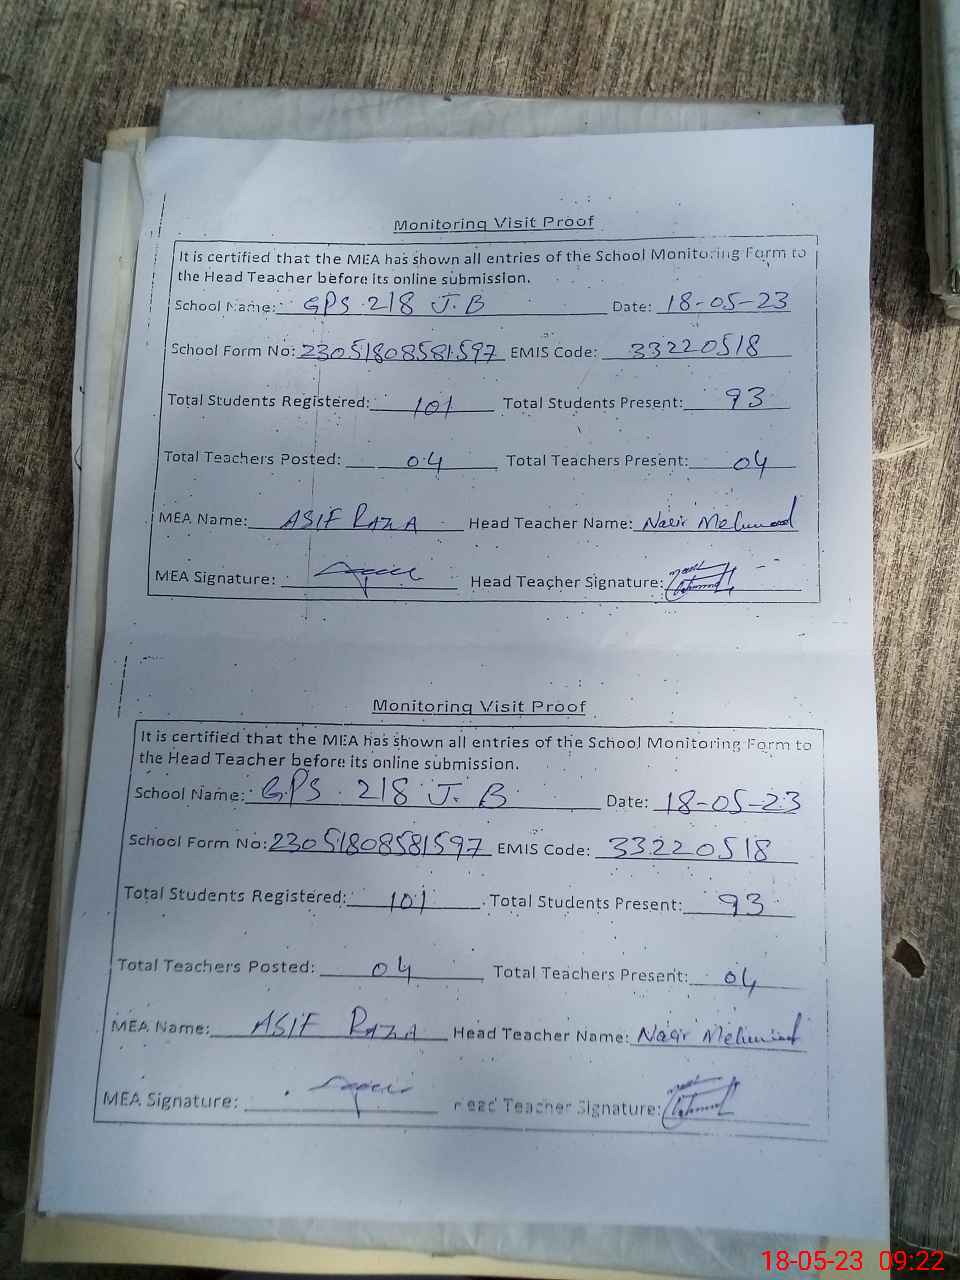 Monitoring Visit Proof
It is certified that the MEA has shown all entries of the School Monitoring Form to
the Head Teacher before its online submission.
School Name: GPS 218 J.B Date: 18-05-23
School Form No: 23051808581597 EMIS Code: 33220518
Total Students Registered: 101 Total Students Present: 93
Total Teachers Posted: 04 Total Teachers Present: 04
MEA Name: ASIF RAZA Head Teacher Name: Nasir Mehmood
MEA Signature: Head Teacher Signature:
Monitoring Visit Proof
It is certified that the MEA has shown all entries of the School Monitoring Form to
the Head Teacher before its online submission.
School Name: GPS 218 J.B Date: 18-05-23
School Form No: 23051808581597 EMIS Code: 33220518
Total Students Registered: 101 Total Students Present: 93
Total Teachers Posted: 04 Total Teachers Present: 04
MEA Name: ASIF RAZA Head Teacher Name: Nasir Mehmood
MEA Signature: Head Teacher Signature:
18-05-23 09:22